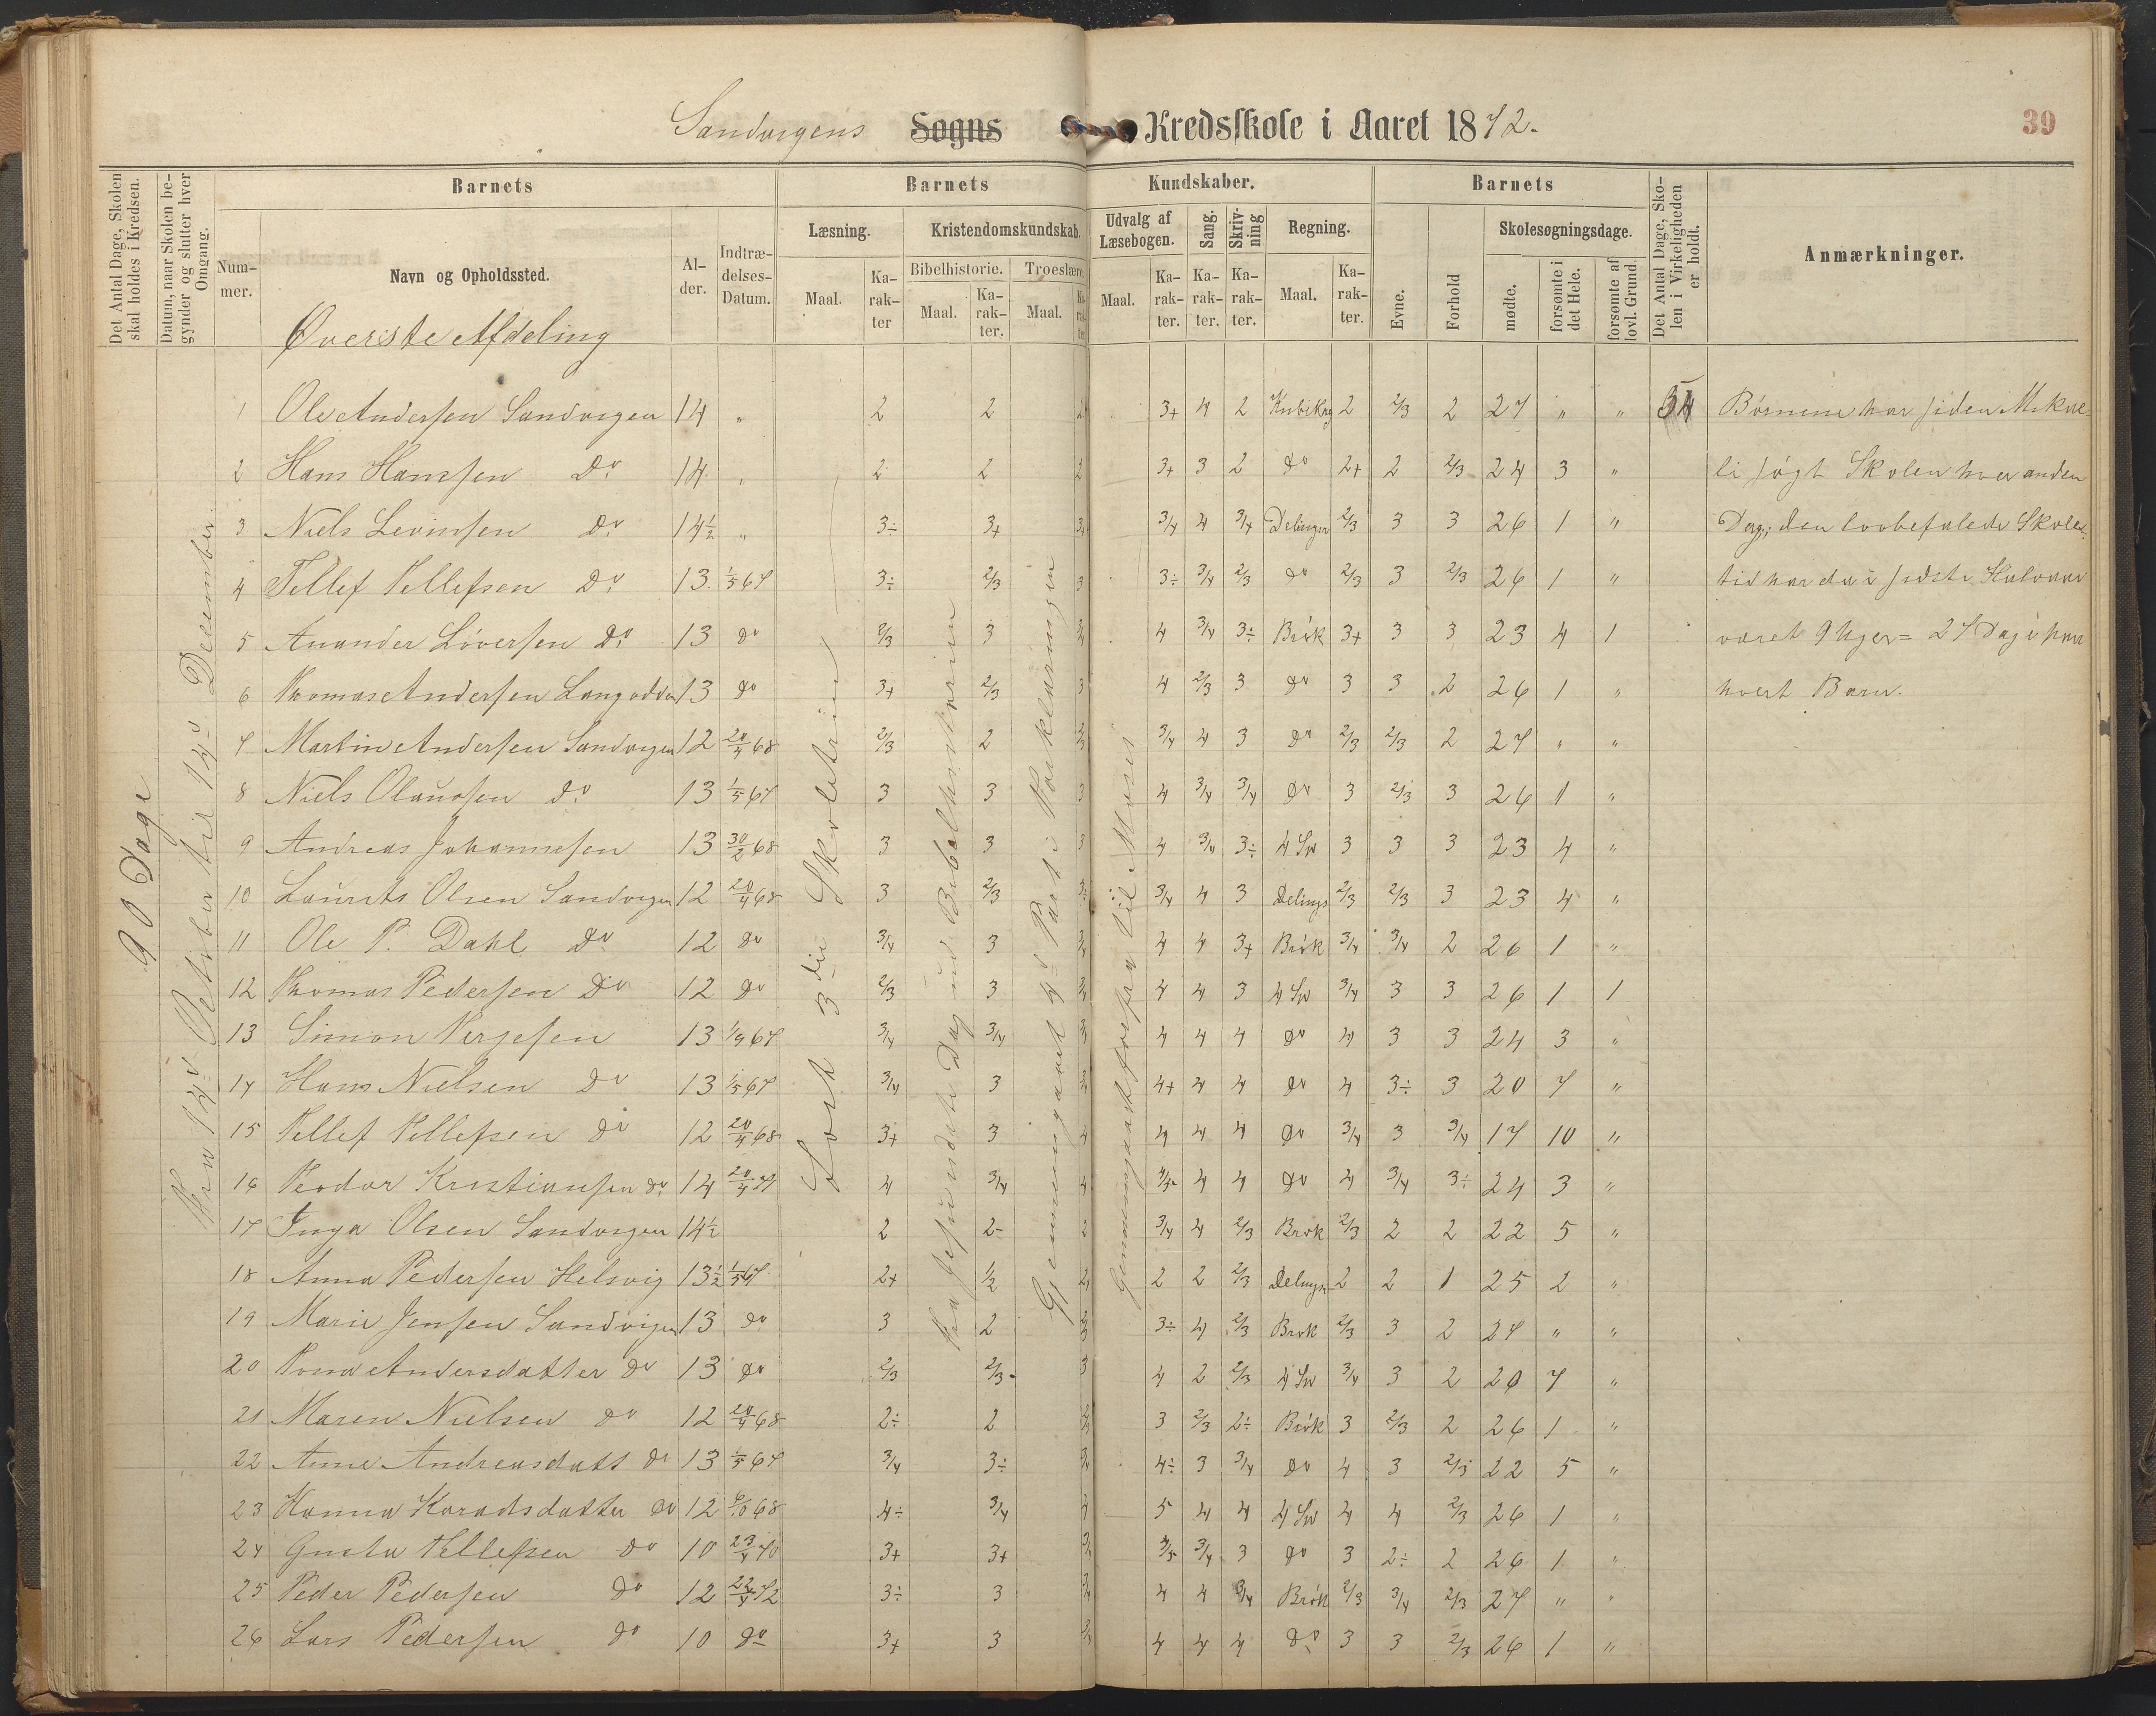 Sandvigens Sogns Kredsskole i Aaret 1872.
39
Det Antal Dage, Skolen skal holdes i Kredsen.
Datum, naar Skolen begynder og slutter hver Omgang.
Barnets
Barnets
Kundskaber.
Barnets
Det Antal Dage, Skolen i Virkeligheden er holdt.
Anmærkninger.
Nummer.
Navn og Opholdssted.
Alder.
Indtrædelses-Datum.
Læsning.
Kristendomskundskab.
Udvalg af Læsebogen.
Sang.
Skrivning
Regning.
Evne.
Forhold
Skolesøgningsdage.
Maal.
Karakter
Bibelhistorie.
Troeslære.
mødte.
forsømte i det Hele.
forsømte af lovl. Grund.
Øverste Afdeling
90 Dage
Fra 14d Oktober til 14d December
Lært 3die Skoletrin
1 Ole Andersen Sandvigen 14 " 2 2 2 3+ 4 2 Kubikrg 2 2/3 2 27 " " 54 Børnene har siden Mikae-
2 Hans Hansen Do 14 " 2 2 2 3+ 3 2 do 2+ 2 2/3 24 3 " li søgt Skolen hver anden
3 Niels Levinsen Do 14½ " 3÷ 3+ 3/4 4 3/4 Delinger 2/3 3 3 26 1 " Dag; den lovbefalede Skole-
4 Tellef Tellefsen Do 13 1/5 67 3÷ 2/3 3 3÷ 3/4 2/3 do 2/3 3 2/3 26 1 " tid har da i sidste Halvaar
5 Anander Løversen Do 13 do 2/3 3 4 3/4 3÷ Brøk 3+ 3 3 23 4 1 været 9 Uger = 27 Dage paa
6 Thomas Andersen Langodden 13 do 3+ 2/3 3 4 2/3 3 do 3 3 2 26 1 " hvert Barn.
7 Martin Andersen Sandvigen 12 20/4 68 2/3 2 3/4 4 3 do 2/3 2/3 2 27 " "
8 Niels Olaussen Do 13 1/5 67 3 3 3 4 3/4 3/4 do 3 2/3 3 26 1 "
9 Andreas Johannesen 13 30/2 68 3 3 3 4 3/4 3÷ 4 Sp 3 3 3 23 4 "
10 Laurits Olsen Sandvigen 12 20/4 68 3 2/3 3/4 4 3 Delings 2/3 2/3 3 23 4 "
11 Ole P. Dahl Do 12 do 3/4 3 4 4 3+ Brøk 3/4 3/4 2 26 1 "
12 Thomas Pedersen Do 12 do 2/3 3 4 4 3 4 Sp 3/4 3 3 26 1 1
13 Simon Tergesen 13 1/9 67 3/4 3/4 4 4 4 do 4 3 3 24 3 "
14 Hans Nielsen Do 13 1/5 67 3/4 3 4+ 4 4 do 4 3÷ 3 20 7 "
15 Tellef Tellefsen do 12 20/4 68 3+ 3 4 4 4 4 do 3/4 3 3/4 17 10 "
16 Teodor Kristiansen do 14 4 3/4 4 4 4 do 4 3/4 3÷ 24 3 "
17 Inga Olsen Sandvigen 14½ 2 2- 2 3/4 4 2/3 Brøk 2/3 2 2 22 5 "
18 Anna Pedersen Helsvig 13½ 1/5 67 2+ ½ 2 2 2/3 Delings 2 2 1 25 2 "
19 Marie Jensen Sandvigen 13 do 3 2 3÷ 4 2/3 Brøk 2/3 3 2 27 " "
20 Tona Andersdatter do 13 do 2/3 2/3 3 4 2 2/3 4 Sp 3/4 3 2 20 7 "
21 Maren Nielsen do 12 20/4 68 2÷ 2 3 2/3 2÷ Brøk 3 2/3 2 26 1 "
22 Anne Andreasdatt do 13 1/5 67 3/4 3÷ 3/4 4÷ 3 3/4 do 4 3 2/3 22 5 "
23 Hanna Koradsdatter do 12 68 4÷ 3/4 5 4 4 4 Sp 4 4 2/3 26 1 "
24 Gusta Tellefsen do 10 23/4 70 3+ 3+ 3/4 3 do 3 2÷ 2 26 1 "
25 Peder Pedersen do 12 22/4 72 3÷ 3 4 4 3/4 Brøk 2/3 3/4 2/3 27 " "
26 Lars Pedersen do 10 do 3+ 3 4 4 4 do 3 3 2/3 26 1 "